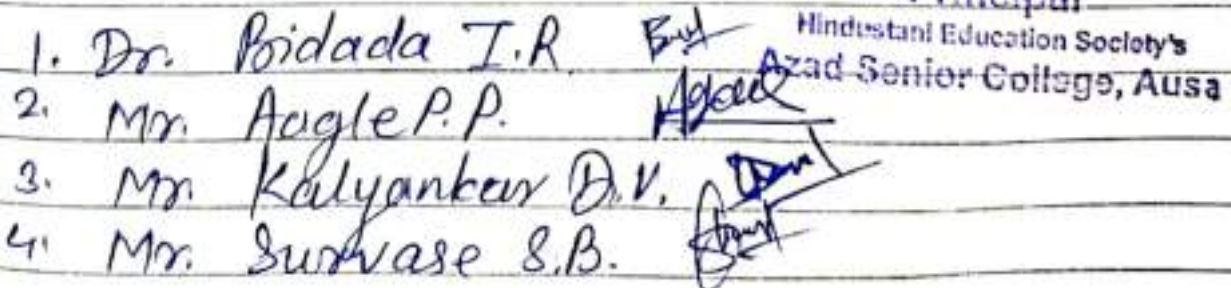 Principal
1. Dr. Bidada I.R.
Hindustani Education Society's
Azad Senior College, Ausa
2. Mr. Aagle P.P.
3. Mr. Kalyankar D.V.
4. Mr. Survase S.B.